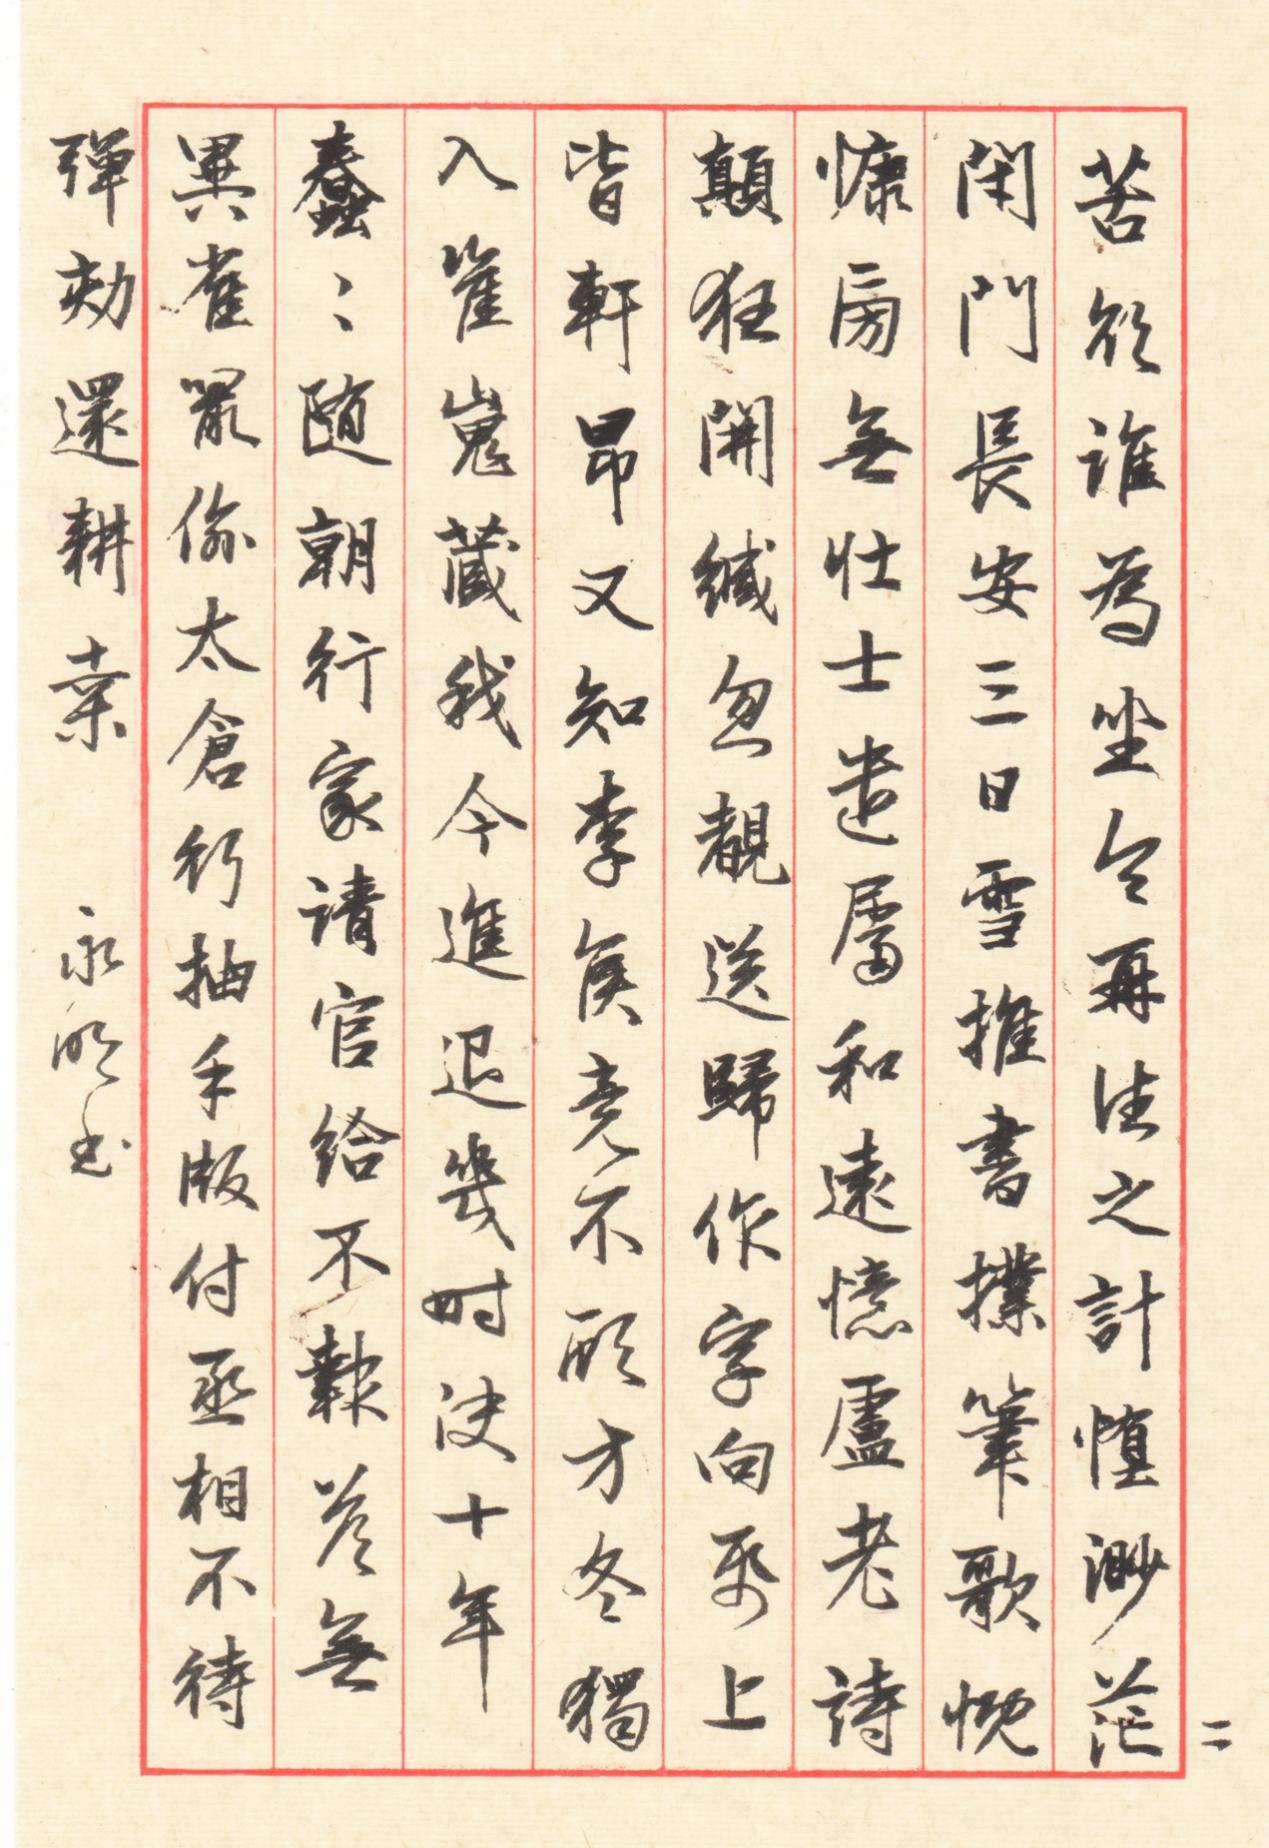 苦欲誰為坐令再往之計惰渺茫
閉門長安三日雪推書撲筆歌慨
慷旁無壯士遣屬和遠憶盧老詩
顛狂開緘忽覩送歸作字向紙上
皆軒昂又知李侯竟不顧方冬獨
入崔嵬藏我今進退幾时決十年
蠢々隨朝行家請官給不報荅無
異雀鼠偷太倉行抽手版付丞相不待
彈劾還耕桒 永明书
二